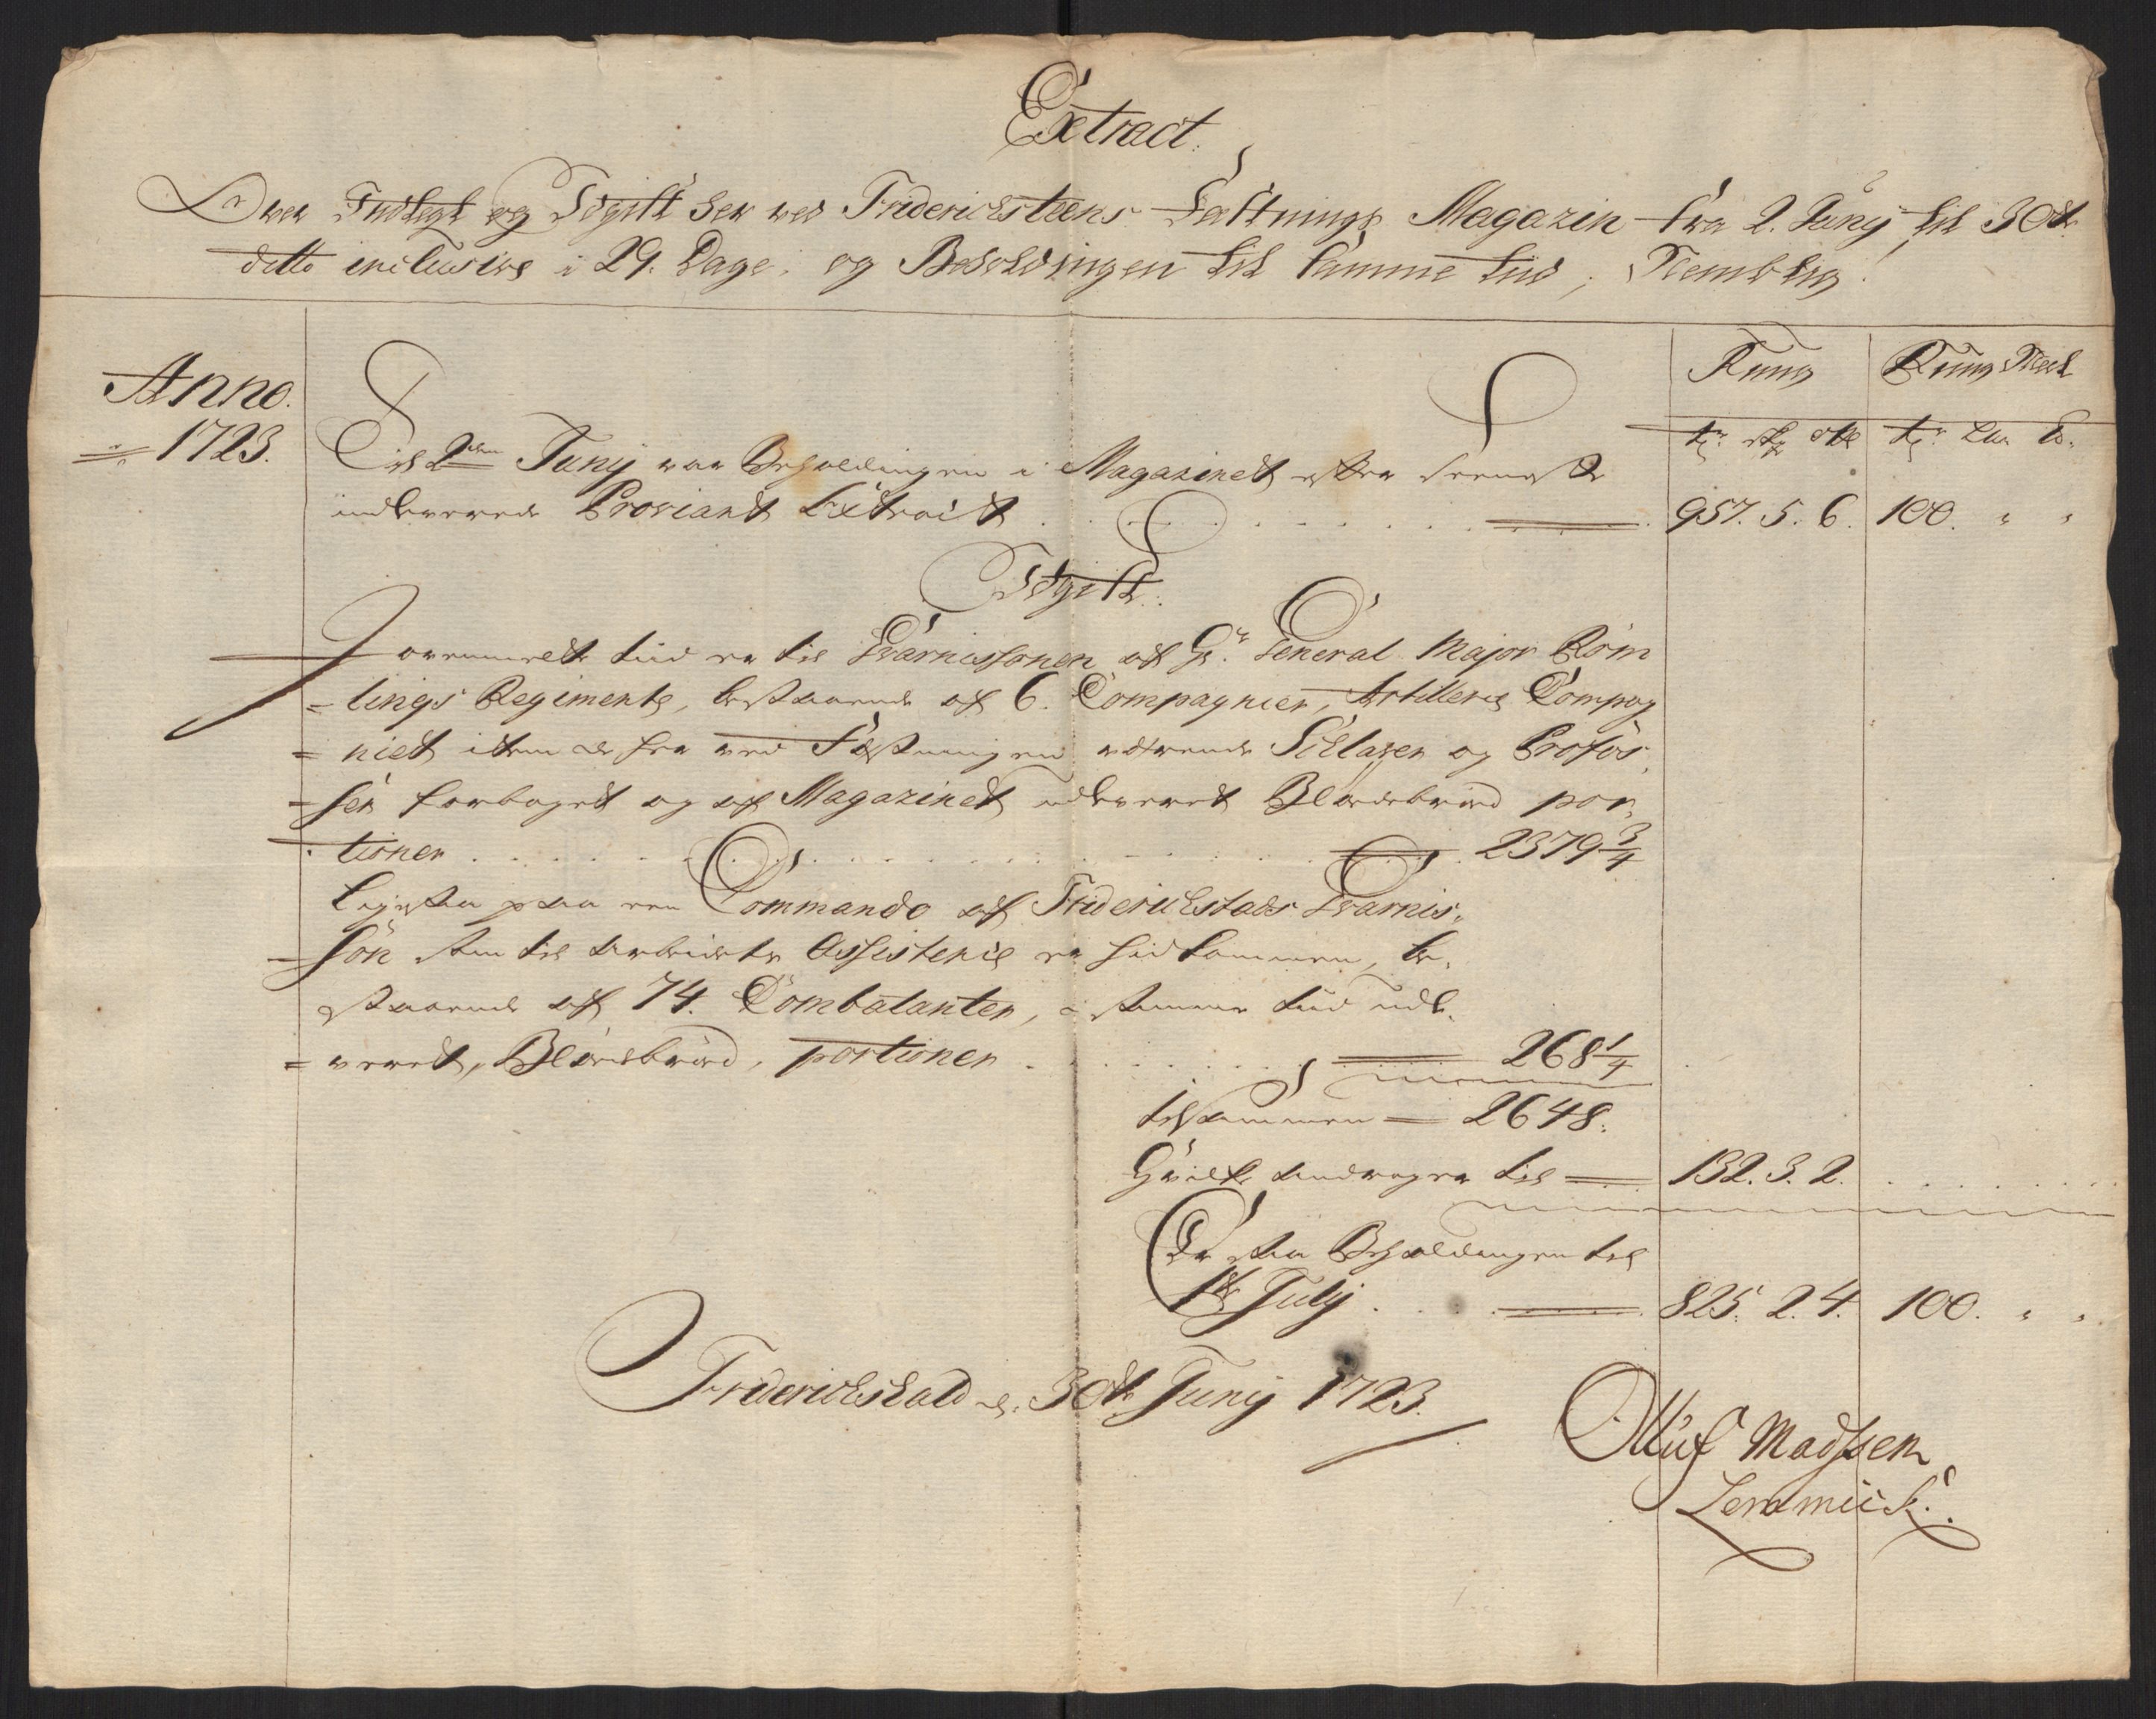 Extract.
Over Indtegt og Udgift her ved Friderichsteens Fæstnings Magazin fra 2. Junij til 30te
ditto inclusive i 29. Dage, og Beholdingen til samme tiid, Nemblig.
Anno.
1723.
Rug Rug Meel
tr: skp
957. 5. 6. 100. " "
Til 2den Junij var Beholdingen i Magazinet efter seeneste
indleverede Proviant Extract
Udgift:
I ovenmelte tiid er til Guarnissonen af Hr. General Major Røm
= lings Regimente, bestaaende af 6. Compagnier, Artillerie Compag
= niet item de her ved Fæstningen værende Sclaver og Profos,
= ser forbaget og af Magazinet udleveret Bløedebrød por,
tioner 2379 3/4
Ligesaa paa een Commando af Friderichstads Guarnis,
= son som til Arbeidets Assistence er hidkommen, be,
staaende af 74. Combatanter, i samme tiid udle,
= veret, Bløedebrød, portioner 268 1/4
tilsammen = 2648.
Hvilke andrager til = 132. 3. 2.
Er saa Beholdingen til
1te Julij 825. 2. 4. 100. " "
Friderichshald d. 30te Junij 1723.
Olluf Madssen